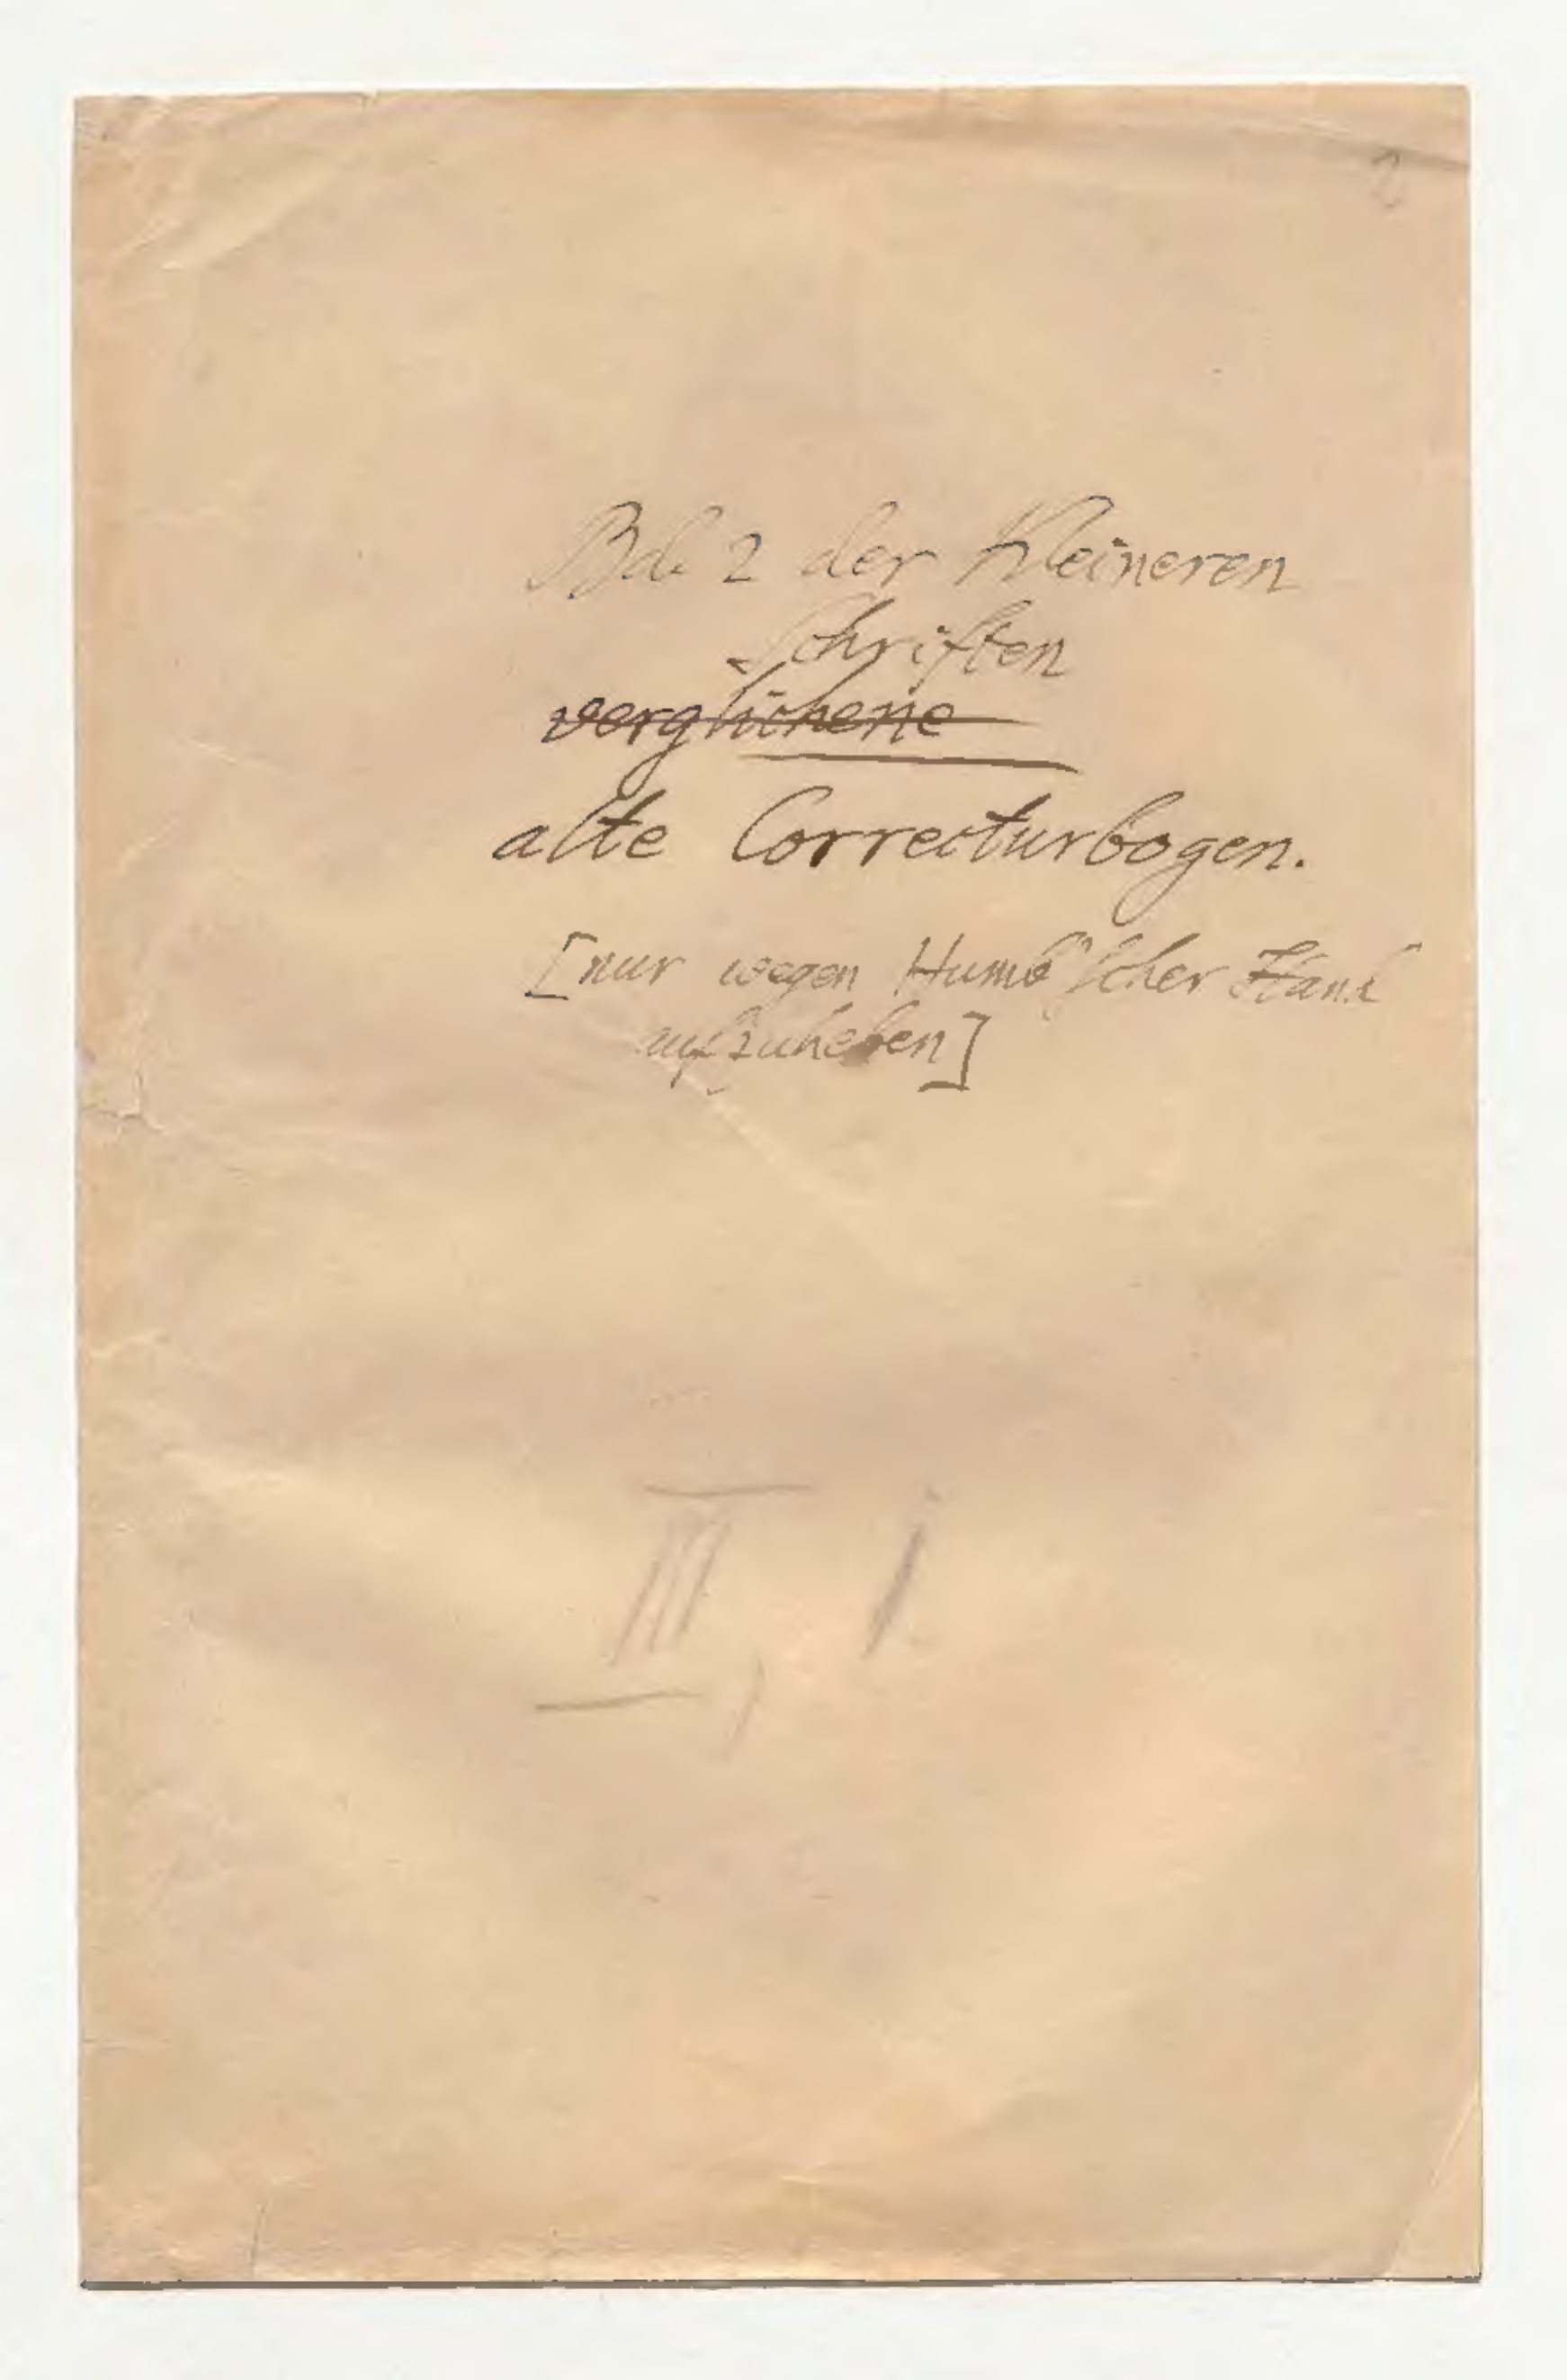 2
Bd. 2 der Kleineren
Schriften
verglichene
alte Correcturbogen.
[nur wegen Humb'scher Hand
aufzuheben]
III, 1.